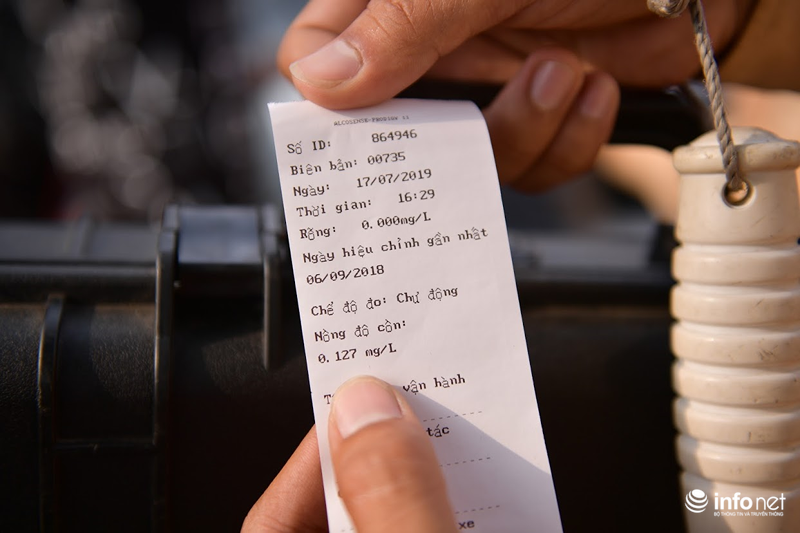 Số ID: 864946
Biên bản: 00735
Ngày: 17/07/2019
Thời gian: 16:29
Rỗng: 0.000mg/L
Ngày hiệu chỉnh gần nhất
06/09/2018
Chế độ đo: Chự động
Nồng độ cồn:
0.127 mg/L
vận hành
tác
xe
infonet
BỘ THÔNG TIN VÀ TRUYỀN THÔNG